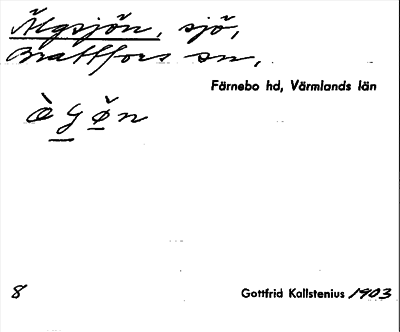 Älgsjön, sjö,
Brattfors sn,
Färnebo hd, Värmlands län
8
Gottfrid Kallstenius 1903